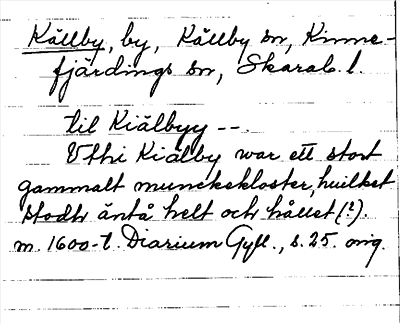 Källby, by, Källby sn, Kinne-
fjärdings sn, Skarab. l.
til Kiälbyy --.
Vthi Kiälby war ett stort
gammalt munckekloster, huilket
stodh ännå helt och hållet (?).
m. 1600-t. Diarium Gyll., s. 25. orig.